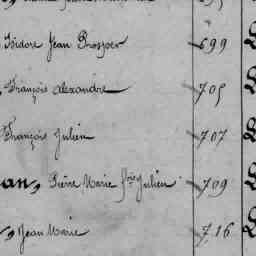 Isidore Jean Prosper 699
François Alexandre 705
François Julien 707
an, Pierre Marie Julien 709
, Jean Marie 716